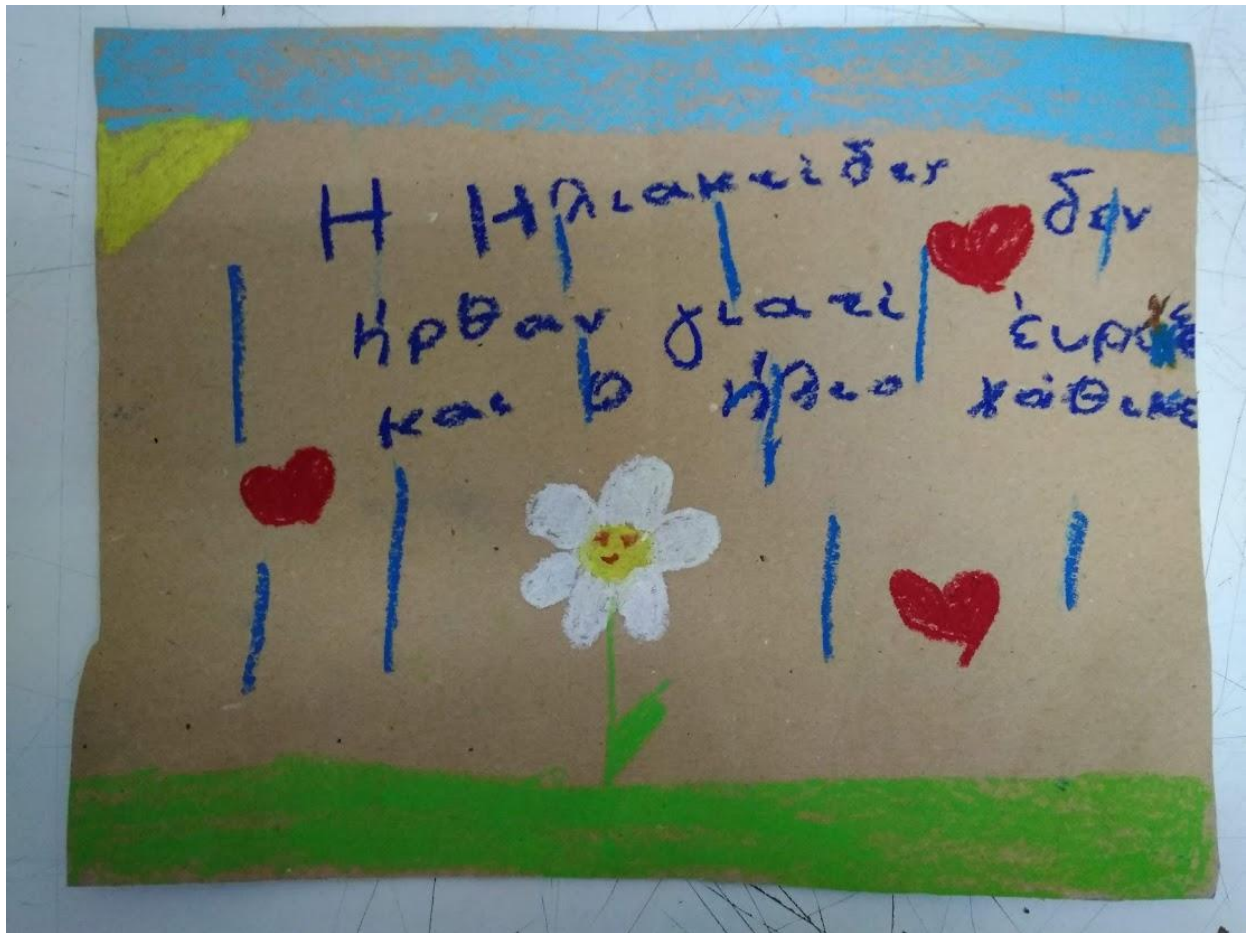 Η Ηλιακτίδες δεν
ήρθαν γιατί
και ο ήλιο χάθικε